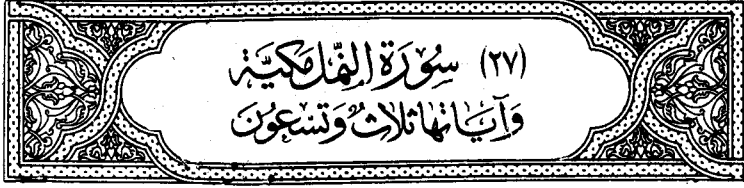 (٢٧) سُورَةُ النَّمْلِ مَكِيَّة
وَآيَاتُهَا ثَلَاثٌ وَتِسْعُونَ